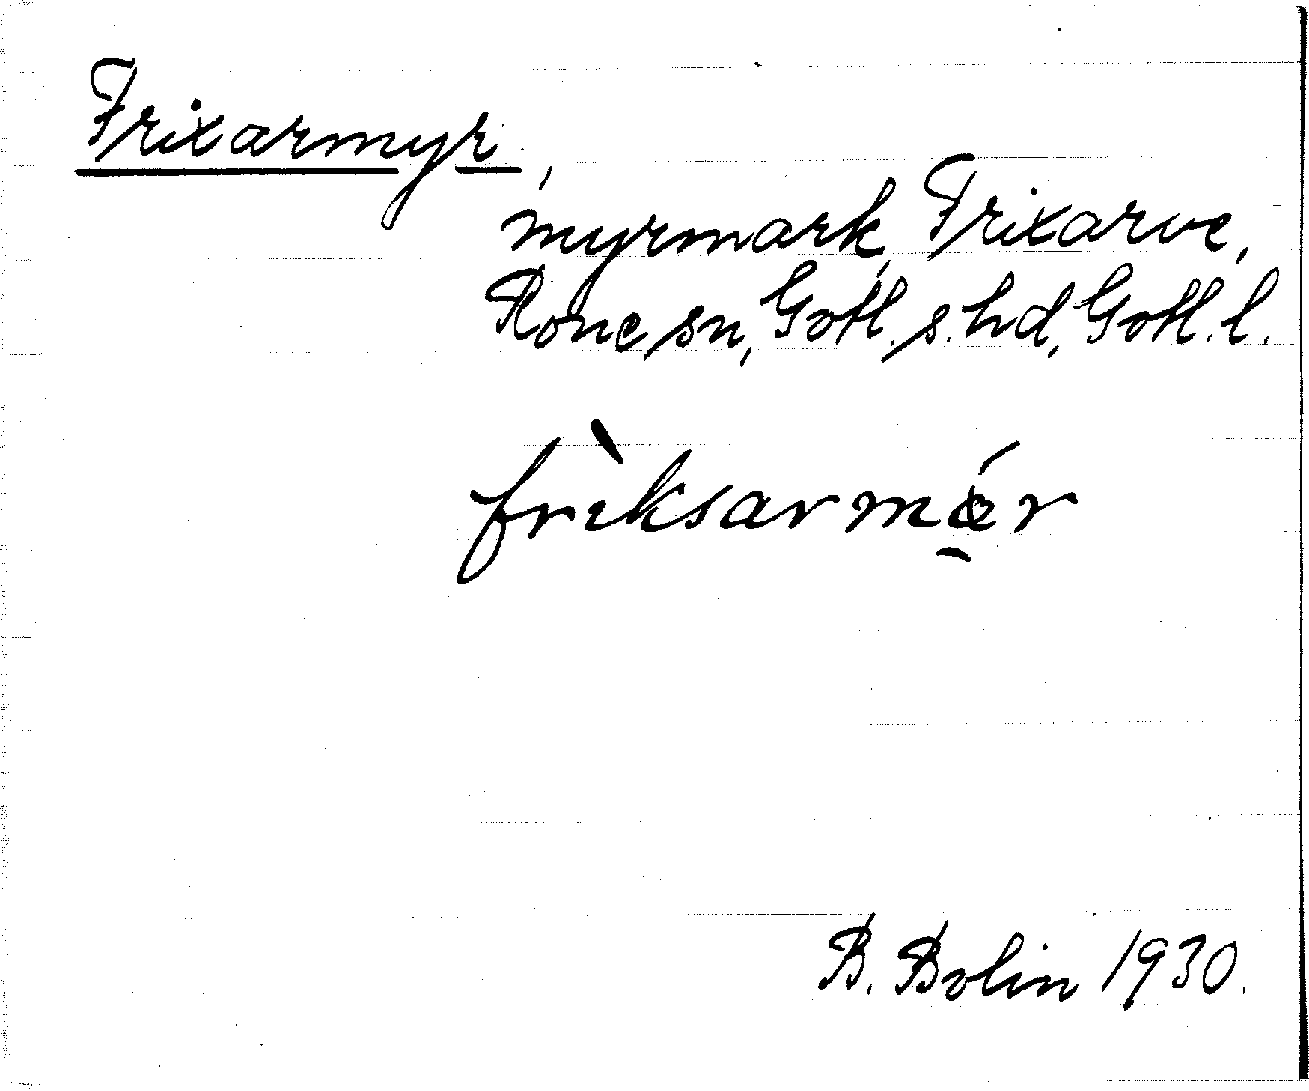 Frixarmyr,
myrmark, Frixarve,
Rone sn, Gotl. s. hd, Gotl. l.
frìksarmǿ̠r
B. Bolin 1930.